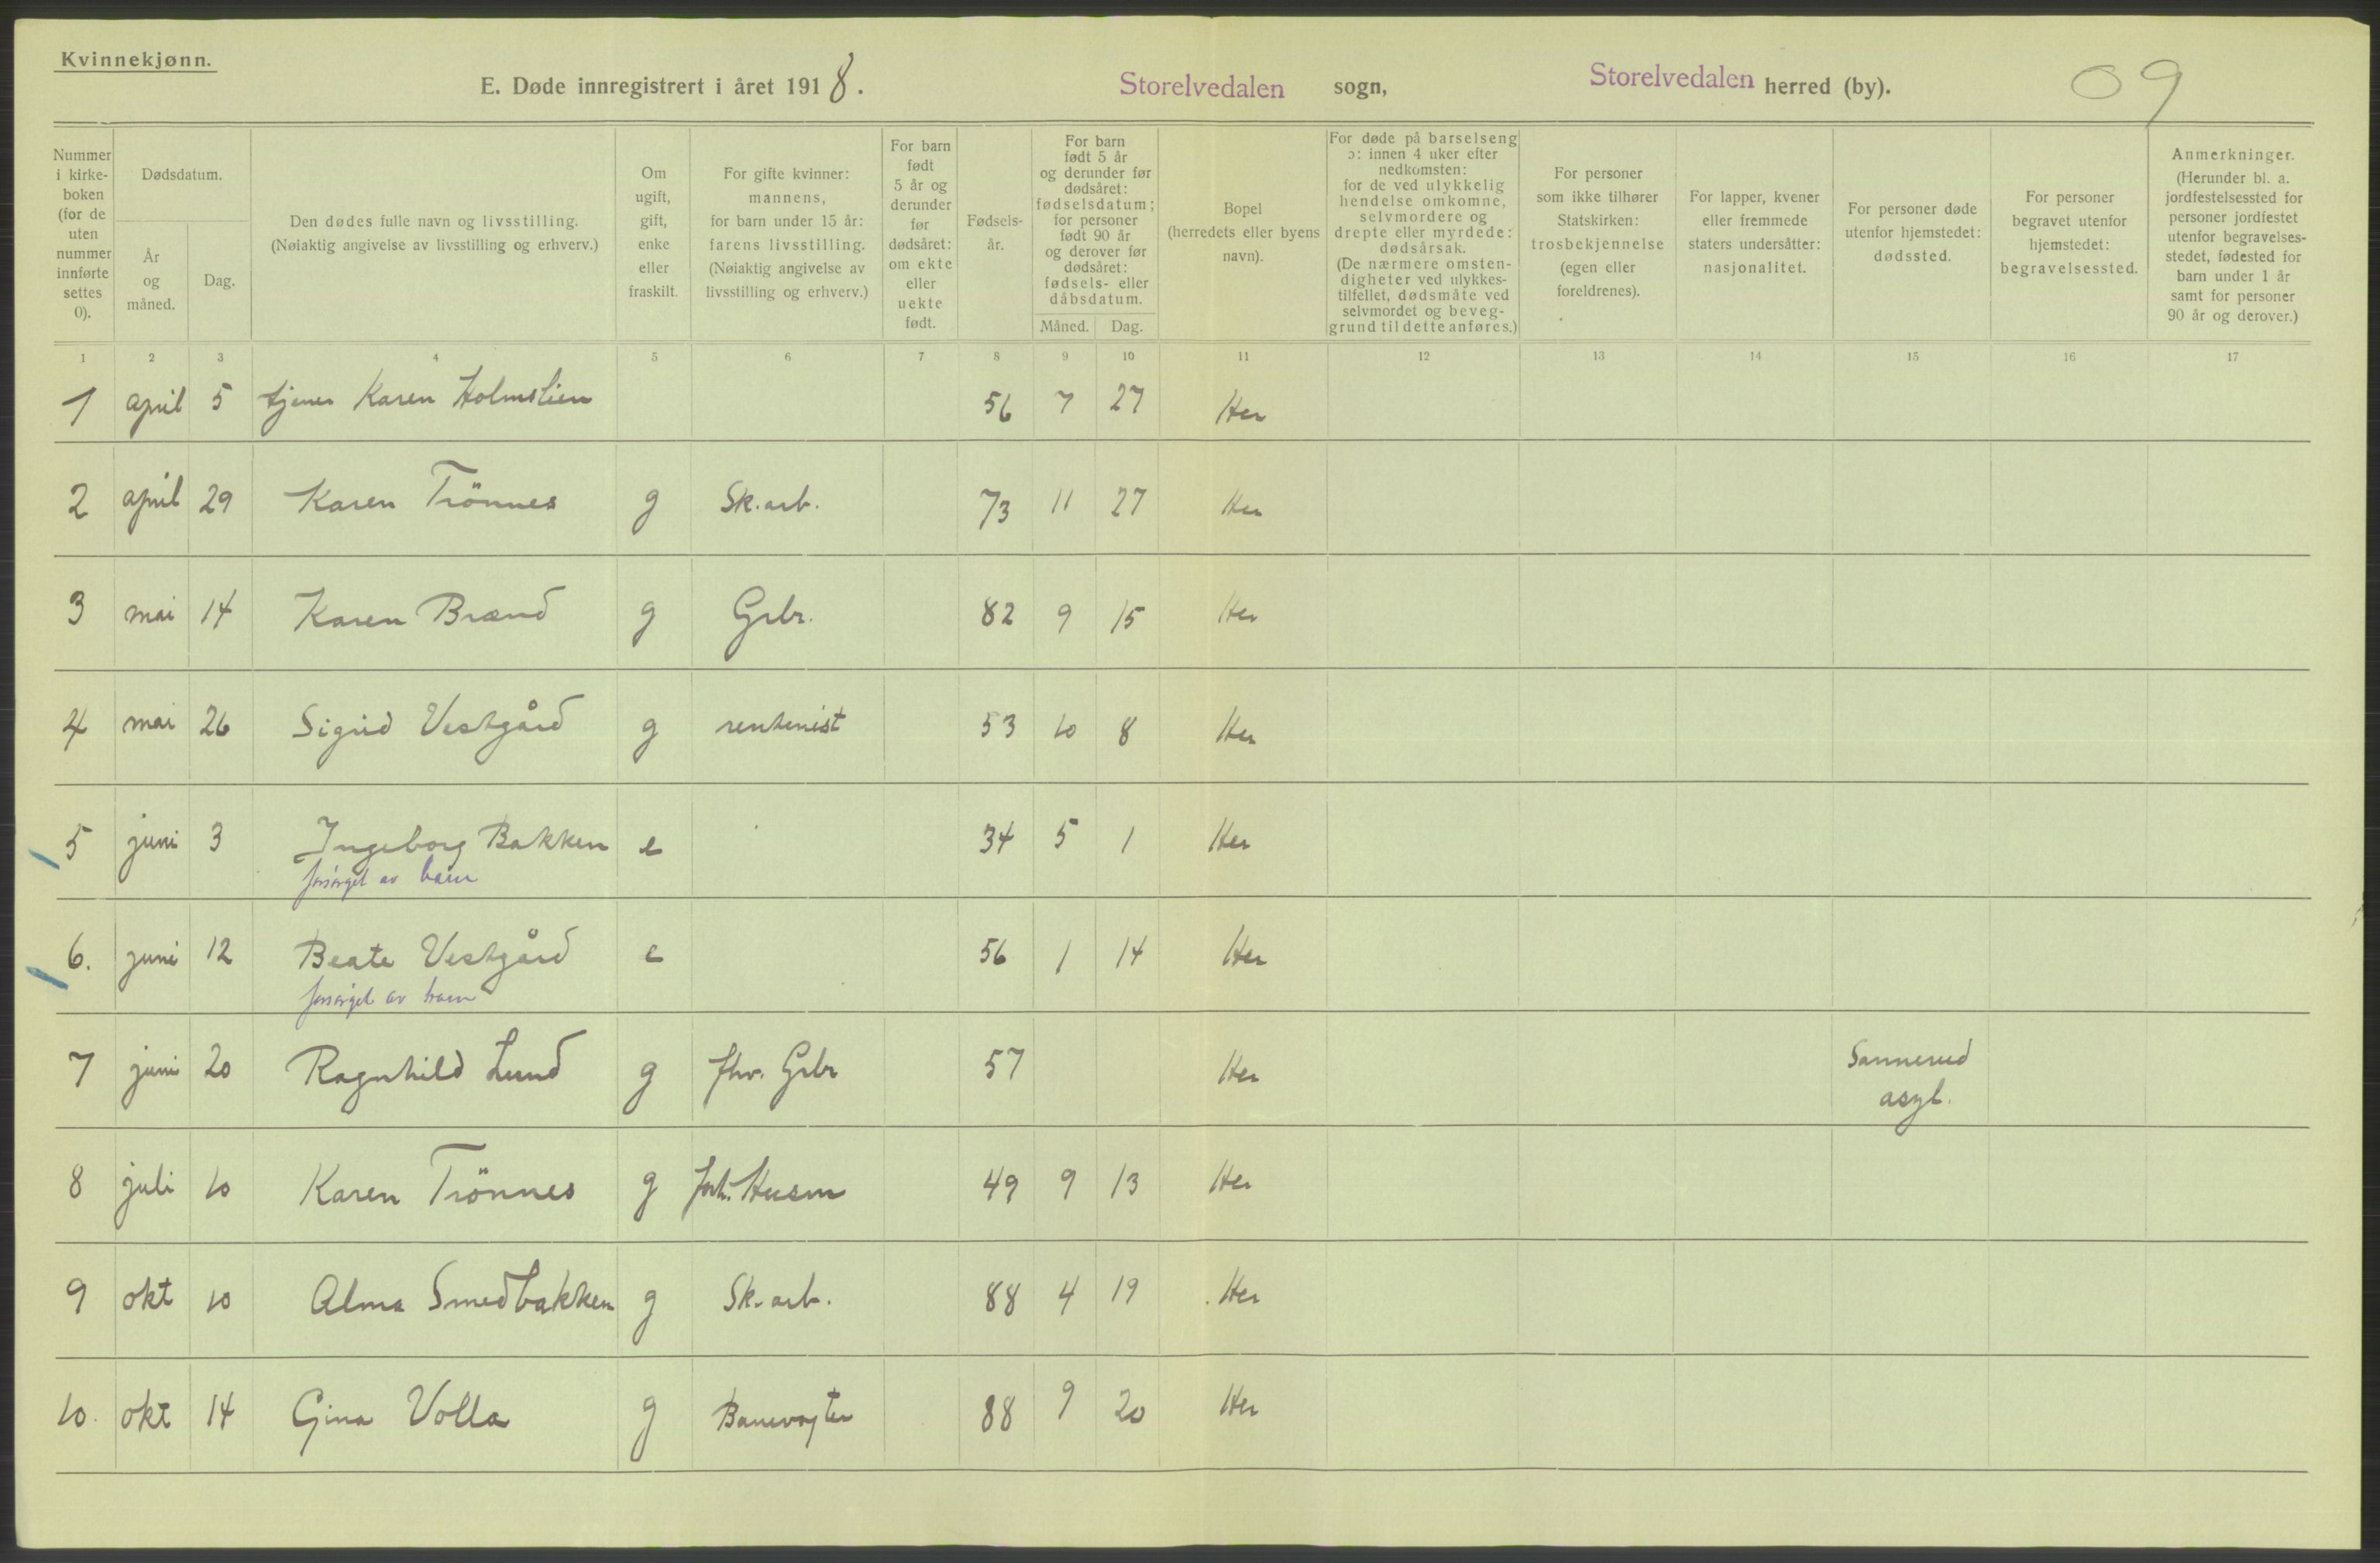 Kvinnekjønn.
E. Døde innregistrert i året 1918. Storelvedalen sogn, Storelvedalen herred (by). 09
Nummer i kirke- boken (for de uten nummer innførte settes 0).
Dødsdatum.
År og måned.
Dag.
Den dødes fulle navn og livsstilling.
(Nøiaktig angivelse av livsstilling og erhverv.)
Om ugift, gift, enke eller fraskilt.
For gifte kvinner: mannens, for barn under 15 år: farens livsstilling. (Nøiaktig angivelse av livsstilling og erhverv.)
For barn født 5 år og derunder før dødsåret: om ekte eller uekte født.
Fødsels- år.
For barn født 5 år og derunder før dødsåret: fødselsdatum; for personer født 90 år og derover før dødsåret: fødsels- eller dåbsdatum.
Måned. Dag.
Bopel (herredets eller byens navn).
For døde på barselseng ɔ: innen 4 uker efter nedkomsten: for de ved ulykkelig hendelse omkomne, selvmordere og drepte eller myrdede: dødsårsak. (De nærmere omsten- digheter ved ulykkes- tilfellet, dødsmåte ved selvmordet og beveg- grund til dette anføres.)
For personer som ikke tilhører Statskirken: trosbekjennelse (egen eller foreldrenes).
For lapper, kvener eller fremmede staters undersåtter: nasjonalitet.
For personer døde utenfor hjemstedet: dødssted.
For personer begravet utenfor hjemstedet: begravelsessted.
Anmerkninger. (Herunder bl. a. jordfestelsessted for personer jordfestet utenfor begravelses- stedet, fødested for barn under 1 år samt for personer 90 år og derover.)
1 2 3 4 5 6 7 8 9 10 11 12 13 14 15 16 17
1 april 5 tjener Karen Holmslien 56 7 27 Her
2 april 29 Karen Trönnes g Sk.arb. 73 11 27 Her
3 mai 14 Karen Brænd g Grbr. 82 9 15 Her
4 mai 26 Sigrid Vestgård g rentenist 53 10 8 Her
5 juni 3 Ingeborg Bakken e 34 5 1 Her
forsørget av barn
6. juni 12 Beate Vestgård e 56 1 14 Her
forsørget av barn
7 juni 20 Ragnhild Lund g fhv. Grbr 57 Her Sannerud
asyl.
8 juli 10 Karen Trönnes g Husm 49 9 13 Her
9 okt 10 Alma Smedbakken g Sk.arb. 88 4 19 Her
10. okt 14 Gina Volla g Banevogter 88 9 20 Her